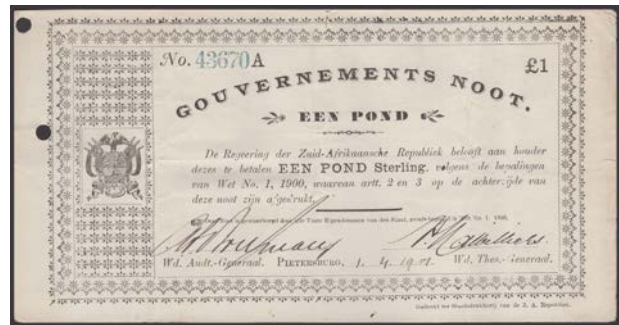 No. 43670 A
£1
GOUVERNEMENTS NOOT.
EEN POND
De Regeering der Zuid-Afrikaansche Republiek belooft aan houder
dezes te betalen EEN POND Sterling, volgens de bepalingen
van Wet No. 1, 1900, waarvan artt. 2 en 3 op de achterzijde van
deze noot zijn afgedrukt.
Wd. Audt.-Generaal. PIETERSBURG, 1. 4. 1901. Wd. Thes.-Generaal.
Gedrukt ter Staatsdrukkerij van de Z. A. Republiek.